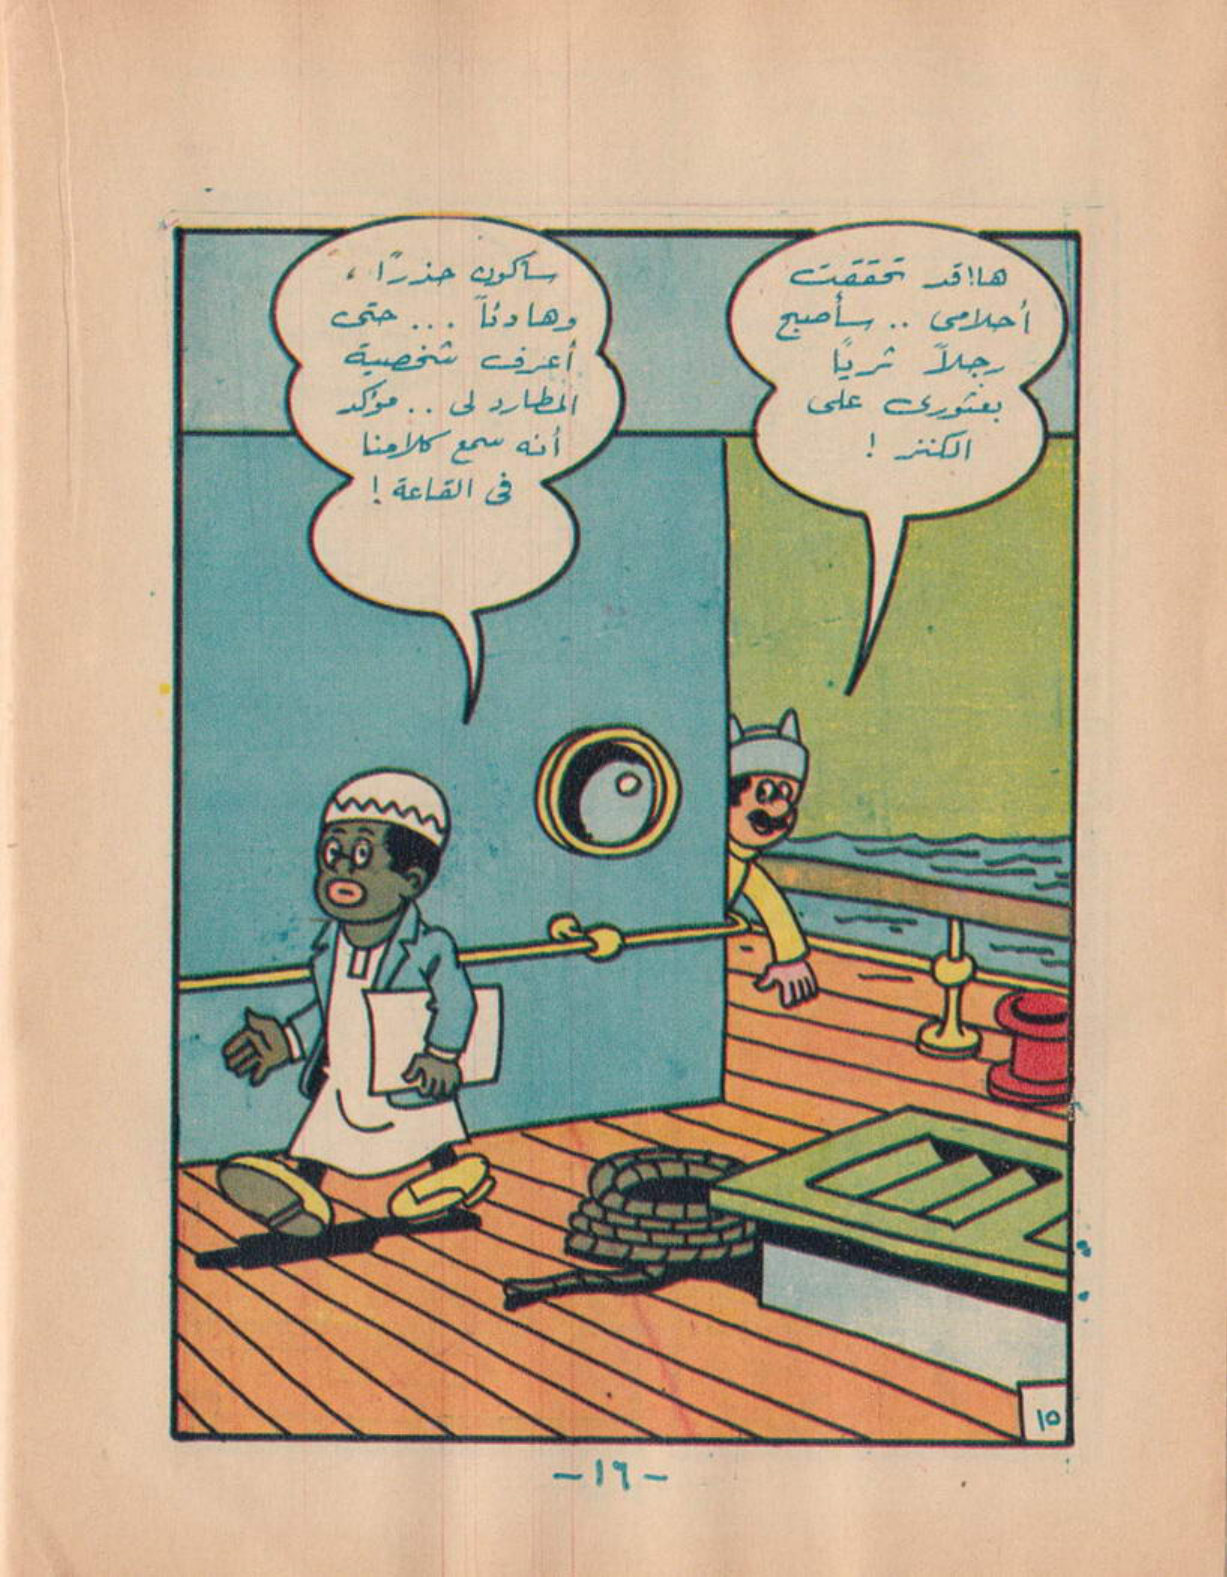 ها! قد تحققت
أحلامى .. سأصبح
رجلاً ثريًا
بعثورى على
الكنز !
سأكون حذرًا ،
وهادئاً ... حتى
أعرف شخصية
المطارد لى .. مؤكد
أنه سمع كلامنا
فى القاعة !
١٥
-١٦-